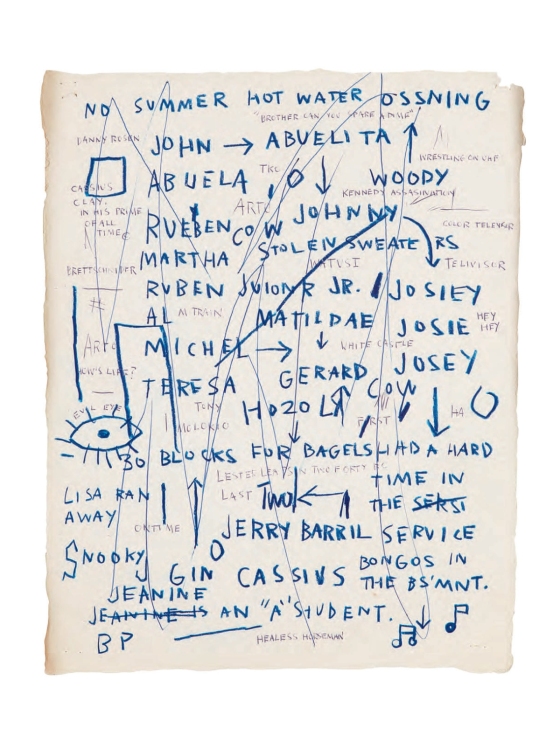 NO SUMMER HOT WATER OSSNING
"BROTHER CAN YOU SPARE A DIME"
DANNY ROSEN
JOHN → ABUELITA
WRESTLING ON UHF
ABUELA TKO WOODY
CASSIUS
CLAY,
IN HIS PRIME
OF ALL
TIME
KENNEDY ASSASINATION
ARTO
JOHNNY
RUEBEN COW
COLOR TELEVISOR
STOLEN SWEATERS
MARTHA
WATUSI
TELIVISOR
BRETTSCHNEIDER
RUBEN JUIONR JR. JOSIEY
#
AL A TRAIN MATILDAE JOSIE HEY
HEY
ARTO
MICHEL → WHITE CASTLE
JOSEY
HOW'S LIFE?
GERARD
TERESA COW
TONY
HOZO LA
H4
EVIL EYE
MOLOKIO
FIRST
30 BLOCKS FOR BAGELS HAD A HARD
LESTER LEAPS IN TWO FORTY
TIME IN
LISA RAN
AWAY
LAST TWO ← THE SERSI
ONE TIME
JERRY BARRIL SERVICE
SNOOKY
BONGOS IN
THE BS'MNT.
GIN CASSIUS
JEANINE
JEANINE IS AN "A" STUDENT.
BP
HEALESS HORSEMAN